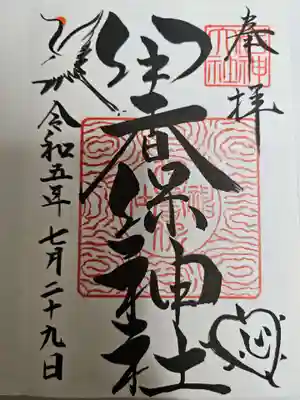 奉拝
伊香保神社
令和五年七月二十九日